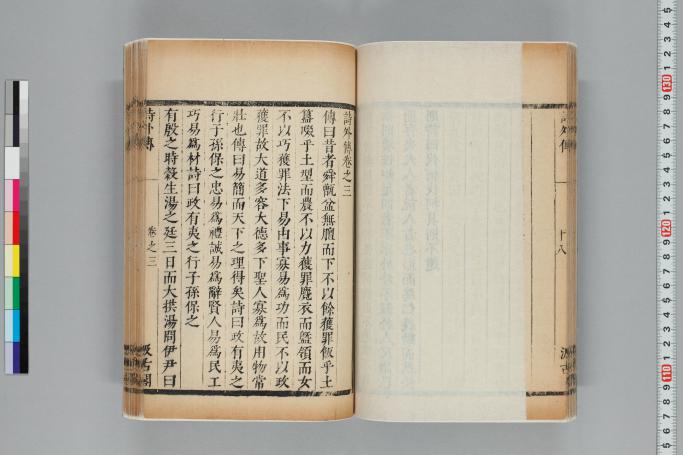 詩外傳
十八
汲古
詩外傳卷之三
傳曰昔者舜甑盆無膻而下不以餘獲罪飯乎土
簋啜乎土型而農不以力獲罪麑衣而盭領而女
不以巧獲罪法下易由事寡易爲功而民不以政
獲罪故大道多容大德多下聖人寡爲故用物常
壯也傳曰易簡而天下之理得矣詩曰政有夷之
行子孫保之忠易爲禮誠易爲辭賢人易爲民工
巧易爲材詩曰政有夷之行子孫保之
有殷之時穀生湯之廷三日而大拱湯問伊尹曰
詩外傳
卷之三
汲古閣
130
120
110